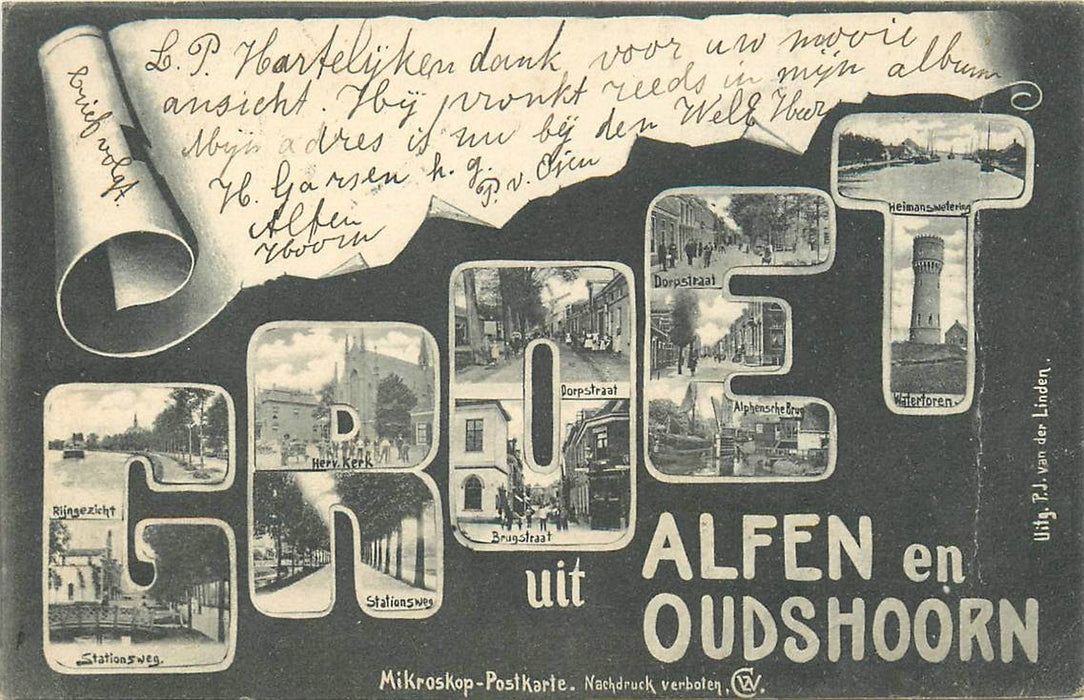 L. P. Hartelijken dank voor uw mooie
ansicht. Hij pronkt reeds in mijn album
Mijn adres is nu bij den WelE Heer
H. Garsen h. g. P. v. Ojen
Alfen
Hoorn
brief volgt.
Heimanswetering
Watertoren.
Dorpstraat
Alphensche Brug
Dorpstraat
Brugstraat
Herv. Kerk
Stationsweg
Rijngezicht
Stationsweg.
GROET
uit
ALFEN en
OUDSHOORN
Uitg. P.J. van der Linden.
Mikroskop-Postkarte. Nachdruck verboten.